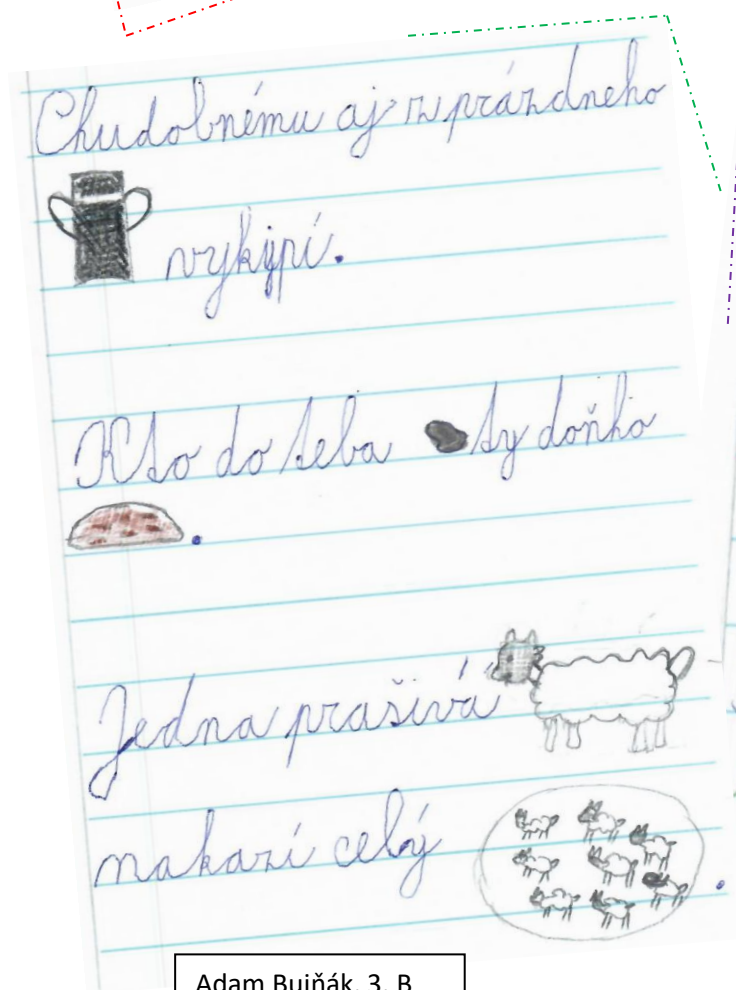 Chudobnému aj z prázdneho
vykypí.
Kto do teba ty doňho
.
Jedna prašivá
nakazí celý .
Adam Bujňák, 3. B